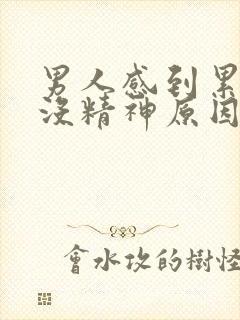 男人感到累
没精神原因
會水攻的樹怪